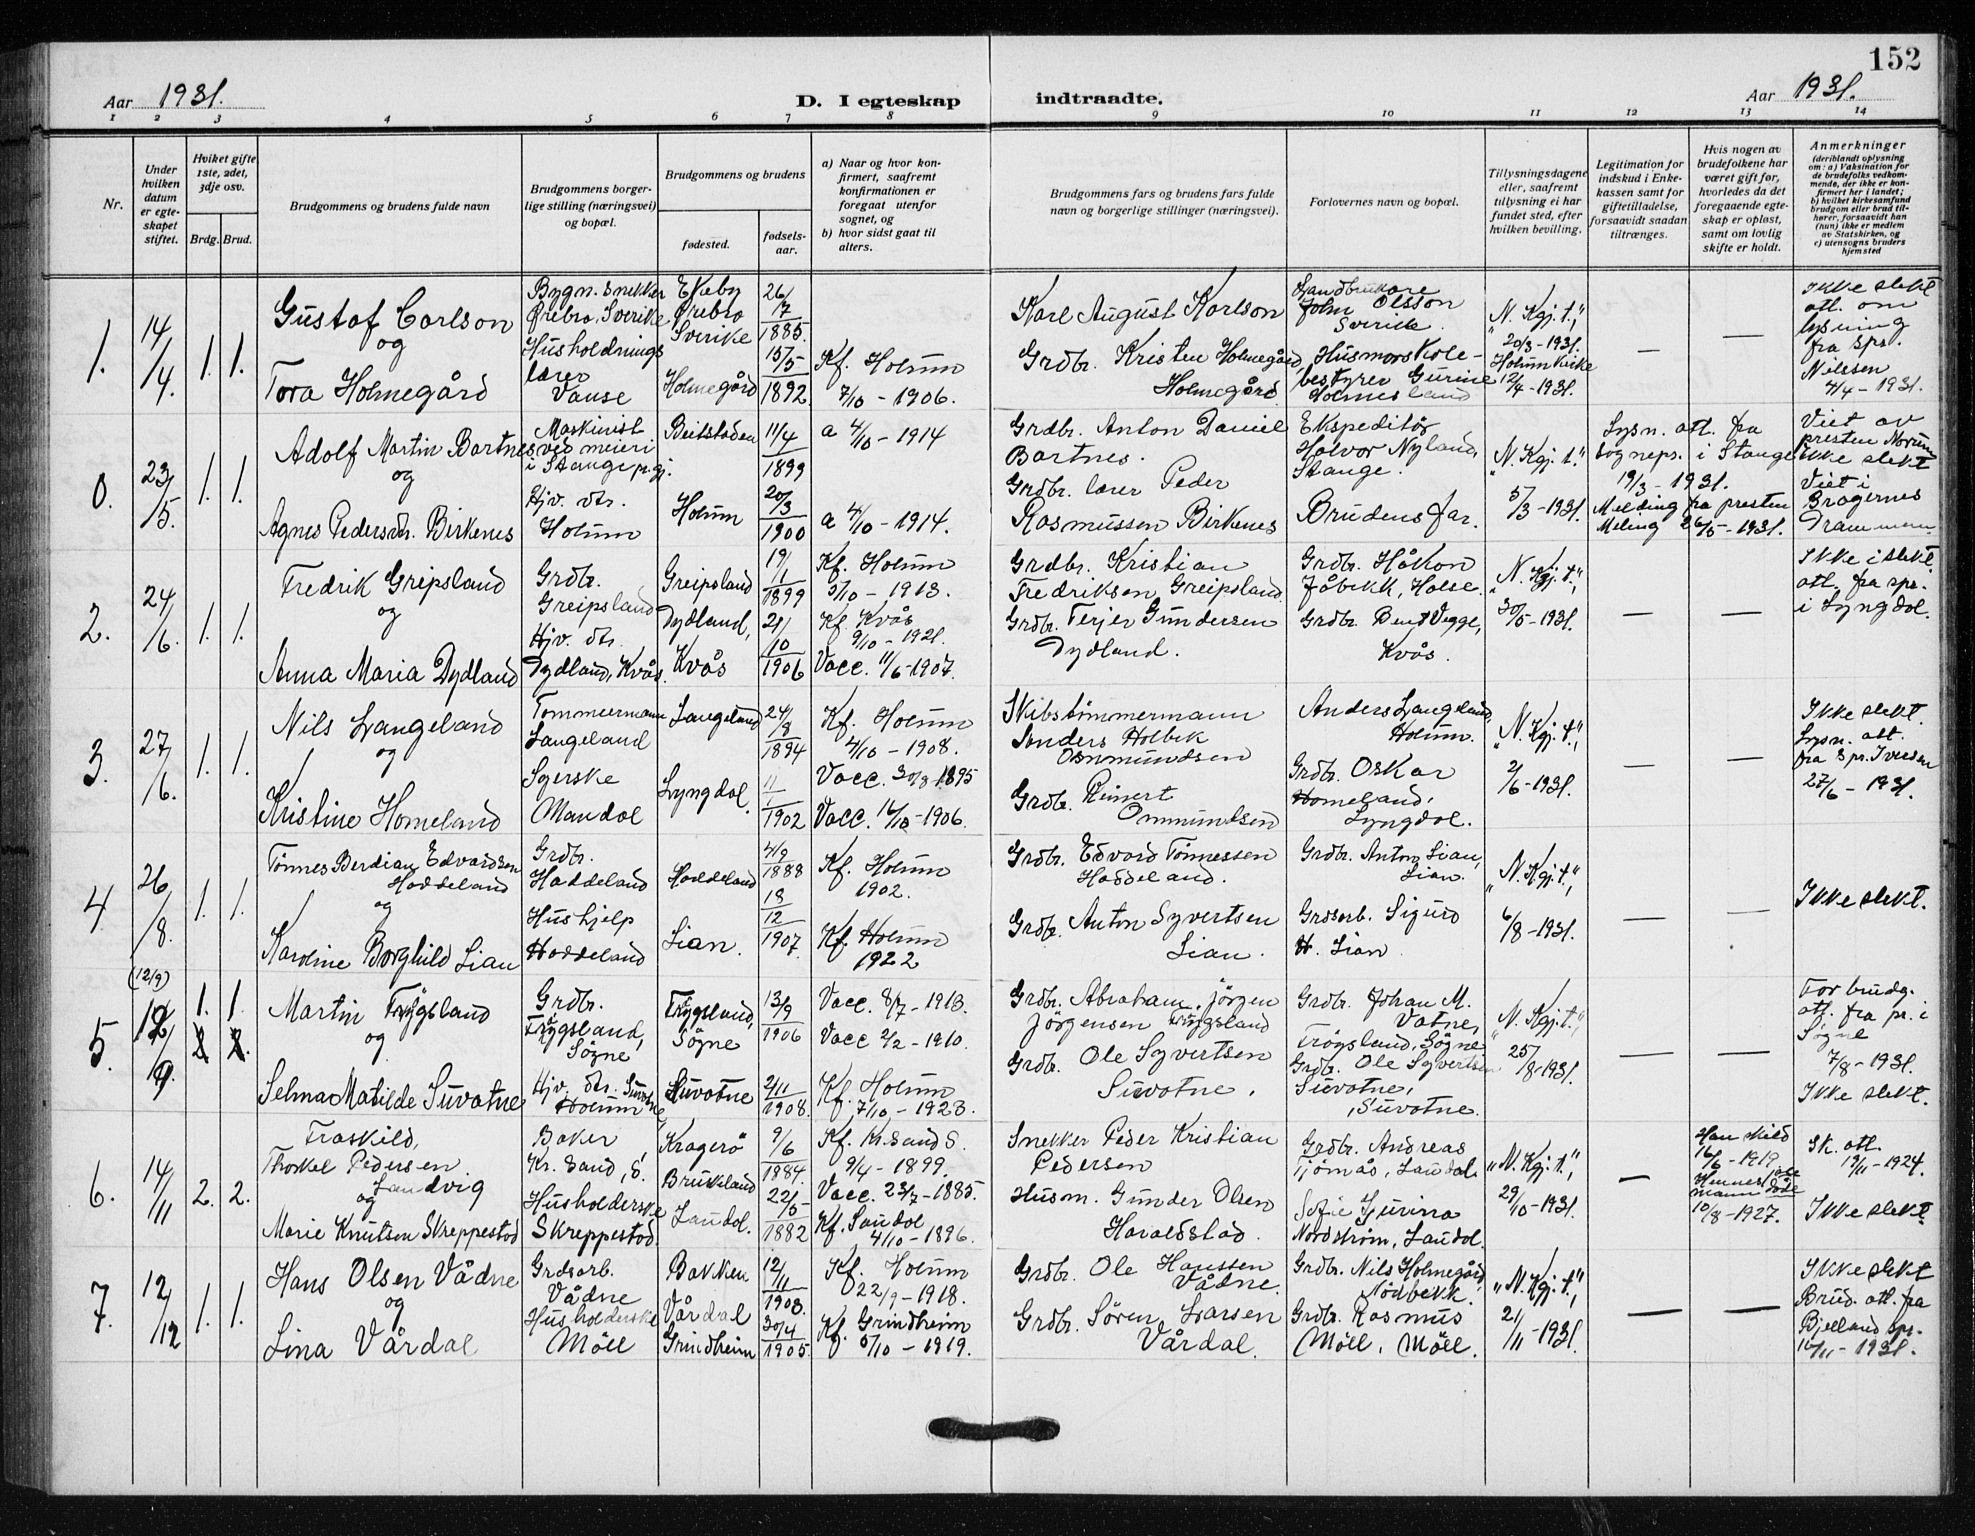 152
Aar 1931.
D. I egteskap indtraadte.
Aar 1931.
1 2 3 4 5 6 7 8 9 10 11 12 13 14
Nr.
Under hvilken datum er egte-skapet stiftet.
Hviket gifte 1ste, 2det, 3dje osv.
Brdg. Brud.
Brudgommens og brudens fulde navn
Brudgommens borger-lige stilling (næringsvei) og bopæl.
Brudgommens og brudens
fødested.
fødsels-aar.
a) Naar og hvor kon-firmert, saafremt konfirmationen er foregaat utenfor sognet, og
b) hvor sidst gaat til alters.
Brudgommens fars og brudens fars fulde navn og borgerlige stillinger (næringsvei).
Forlovernes navn og bopæl.
Tillysningsdagene eller, saafremt tillysning ei har fundet sted, efter hvilken bevilling.
Legitimation for indskud i Enke-kassen samt for giftetilladelse, forsaavidt saadan tiltrænges.
Hvis nogen av brudefolkene har været gift før, hvorledes da det foregaaende egte-skap er opløst, samt om lovlig skifte er holdt.
Anmerkninger
(deriblandt oplysning om: a) Vaksination for de brudefolks vedkom-mende, der ikke er kon-firmert her i landet; b) hvilket kirkesamfund brudgom eller brud til-hører, forsaavidt han (hun) ikke er medlem av Statskirken, og c) utensogns bruders hjemsted
1. 14/4. 1. 1.
Gustaf Carlson
og
Tora Holmegård
Bygn. snekker
Ørebro, Sverike
Husholdnings
lærer
Vanse
Ekeby
Ørebro
Sverike
Holmegård
26/17 1885.
15/5 1892
Kf. Holum
7/10 - 1906.
Karl August Karlson
Grdbr. Kristen Holmegård,
Holmegård
Landbrukare
John Olsson
Sverick.
Husmorskole-
bestyrer Gurine
Holmesland
"N. Kgj. t.",
20/3 - 1931.
Holum Kirke
12/4 - 1931.
—
—
Ikke slekt
att. om
lysning
fra spr.
Nilssen
4/4 - 1931.
0. 23/5. 1. 1.
Adolf Martin Bartnes
og
Agnes Pedersdtr. Birkenes
Maskinist
ved meieri
i Stange p.gj.
Hjv. dtr.
Holum
Beitstaden
Holum
11/4 1899
20/3 1900
a 4/10 - 1914
a 4/10 - 1914.
Grdbr. Anton Daniel
Bartnes.
Grdbr. lærer Peder
Rasmussen Birkenes
Ekspeditør
Halvor Nyland,
Stange.
Brudens far.
"N. Kgj. t."
5/3 - 1931.
Lysn. att. fra
sognepr. i Stange
19/3 - 1931.
Melding fra presten
Meling 26/5 - 1931.
Viet av
presten
Ikke slekt
Viet i
Bragernes
Drammen
2. 24/6. 1. 1.
Fredrik Gripsland
og
Anna Maria Dydland
Grdbr.
Greipsland
Hjv. dtr.
Dydland, Kvås.
Greipsland
Dydland,
Kvås
19/1 1899
21/10 1906
Kf. Holum
5/10 - 1913.
Kf. Kvås
9/10 - 1921.
Vacc. 11/6 - 1907.
Grdbr. Kristian
Fredriksen Greipsland
Grdbr. Terjer Gundersen
Dydland.
Grdbr. Håkon
Jåbekk, Halse
Grdbr. Bent Vegge,
Kvås.
"N. Kgj. t.",
30/5 - 1931.
—
—
Ikke i slekt.
att. fra spr.
i Lyngdal.
3. 27/6. 1. 1.
Nils Langeland
og
Kristine Homeland
Tømmermann
Langeland
Syerske
Mandal
Langeland
Lyngdal
24/8 1894
11/1 1902
Kf. Holum
4/10 - 1908.
Vacc. 30/8 1895
Vacc. 16/10 - 1906.
Skibstømmermann
Anders Holbek
Osmundsen
Grdbr. Reinert
Ommundsen
Anders Langeland,
Holum.
Grdbr. Oskar
Homeland,
Lyngdal.
"N. Kgj. t.",
2/6 - 1931.
—
—
Ikke slekt.
Lysn. att.
fra spr. Iversen
27/6 - 1931.
4. 26/8. 1. 1.
Tønnes Berdian Edvardsen
Haddeland
og
Karoline Borghild Lian
Grdbr.
Haddeland
Hushjelp
Haddeland
Haddeland
Lian.
4/9 1888
18/12 1907.
Kf. Holum
1902.
Kf. Holum
1922
Grdbr. Edvard Tønnessen
Haddeland.
Grdbr. Anton Syvertsen
Lian.
Grdbr. Anton Lian,
Lian.
Grdsarb. Sigurd
H. Lian
"N. Kgj. t.",
6/8 - 1931.
—
—
Ikke slekt.
(12/9)
5. 12/9. 1. 1.
Martin Trygsland
og
Selma Matilde Suvatne
Grdbr.
Trygsland,
Søgne
Hjv. dtr. Suvatne
Holum
Trygsland,
Søgne
Suvatne
13/9 1906
2/11 1908.
Vacc. 8/7 - 1913.
Vacc 2/2 - 1910.
Kf. Holum
7/10 - 1923.
Grdbr. Abraham Jörgen
Jörgensen Trygsland
Grdbr. Ole Syvertsen
Suvatne.
Grdbr. Johan M.
Vatne,
Trøgsland, Søgne
Grdbr. Ole Syvertsen
Suvatne,
Suvatne.
"N. Kgj. t.",
25/8 - 1931.
—
—
For brudg.
att. fra pr. i
Søgne
7/8 - 1931.
Ikke slekt.
6. 14/11 2. 2.
Fraskild,
Thorkel Pedersen
Landvig
og
Marie Knutsen Skreppestad
Baker
Kr. sand, S.
Husholderske
Skreppestad.
Kragerö
Brukeland
Laudal.
9/6 1884.
22/5 1882
Kf. Kr.sand S.
9/4 - 1899.
Vacc. 23/7 - 1885.
Kf. Laudal
4/10 - 1896.
Snekker Peder Kristian
Pedersen
Husm. Gunder Olsen
Haraldstad.
Grdbr. Andreas
Tjomås, Laudal.
Sofie Gurina
Nordstrøm, Laudal.
"N. Kgj. t.",
29/10 - 1931.
—
Han skild
16/6 - 1919
Hennes
mann døde
10/8 - 1927.
Sk. att.
19/11 - 1924.
Ikke slekt.
7. 12/12 1. 1.
Hans Olsen Vådne
og
Lina Vårdal
Grdsarb.
Vådne
Husholderske
Möll
Bakken
Vårdal
Grindheim
12/11 1903.
30/4 1905.
Kf. Holum
22/9 - 1918.
Kf. Grindheim
5/10 - 1919.
Grdbr. Ole Hanssen
Vådne.
Grdbr. Sören Larsen
Vårdal.
Grdbr. Nils Holmegård,
Nödbekk.
Grdbr. Rasmus
Möll, Möll.
"N. Kgj. t.",
21/11 - 1931.
—
—
Ikke slekt
Brud. att. fra
Bjelland spr.
16/11 - 1931.